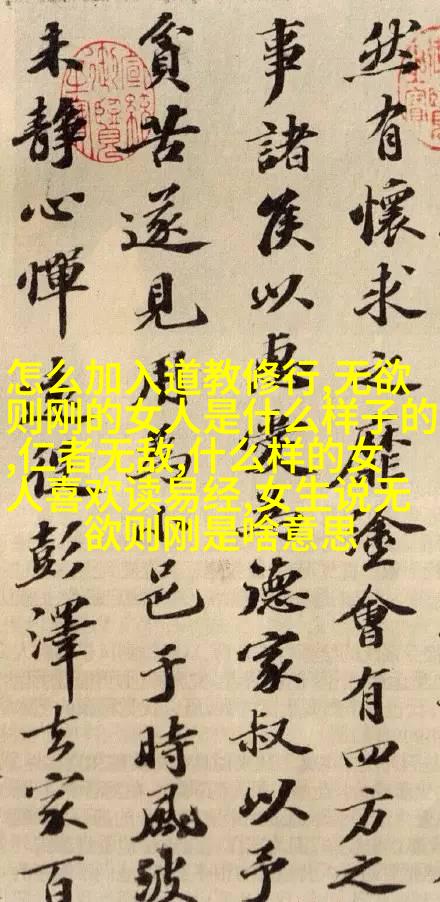 然有懷求之靡會有四方之
事諸侯以德家叔以予
貧苦遂見用為小邑于時風波
未靜心憚遠役彭澤去家百
怎么加入道教修行,无欲
则刚的女人是什么样子的
,仁者无敌,什么样的女
人喜欢读易经,女生说无
欲则刚是啥意思